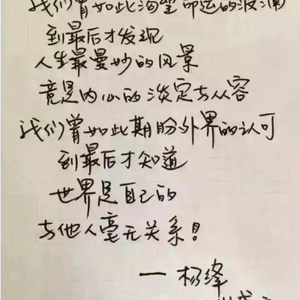 我们曾如此渴望命运的波澜
到最后才发现
人生最曼妙的风景
竟是内心的淡定与从容
我们曾如此期盼外界的认可
到最后才知道
世界是自己的
与他人毫无关系！
— 杨绛